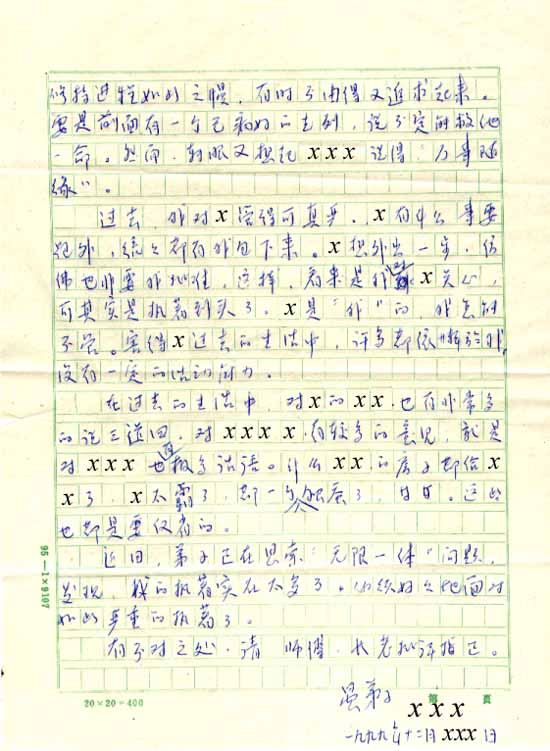 修持进程如此之慢，有时不由得又追求起来。
要是前面有一个已病好的先列，说不定能救他
一命。然而，转眼又想起 xxx 说得："万事随
缘"。
过去，我对 x 管得可真严。x 有什么事要
跑外，统统都有我包下来。x 想外出一步，仿
佛也非要我批准，这样，看来是我对 x 关心，
可其实是执著到头了。x 是"我"的，我怎能
不管。害得 x 过去的生活中，许多都依赖于我，
没有一定的活动能力。
在过去的生活中，对 x 的 xx 也有非常多
的说三道四，对 xxxx 有较多的意见，就是
对 xxx 也有很多话语。什么 xx 的房子都给 x
x 了，x 太霸了，都一个 了，等等。这些
也都是要忏悔的。
近日，弟子正在思索"无限一体"问题，
发现，我的执著实在太多了。必须好好地面对
如此严重的执著了。
有不对之处，请 师傅、长老批评指正。
弟子
xxx
一九九九年十二月 xxx 日
第 页
20×20=400
95—1×9107